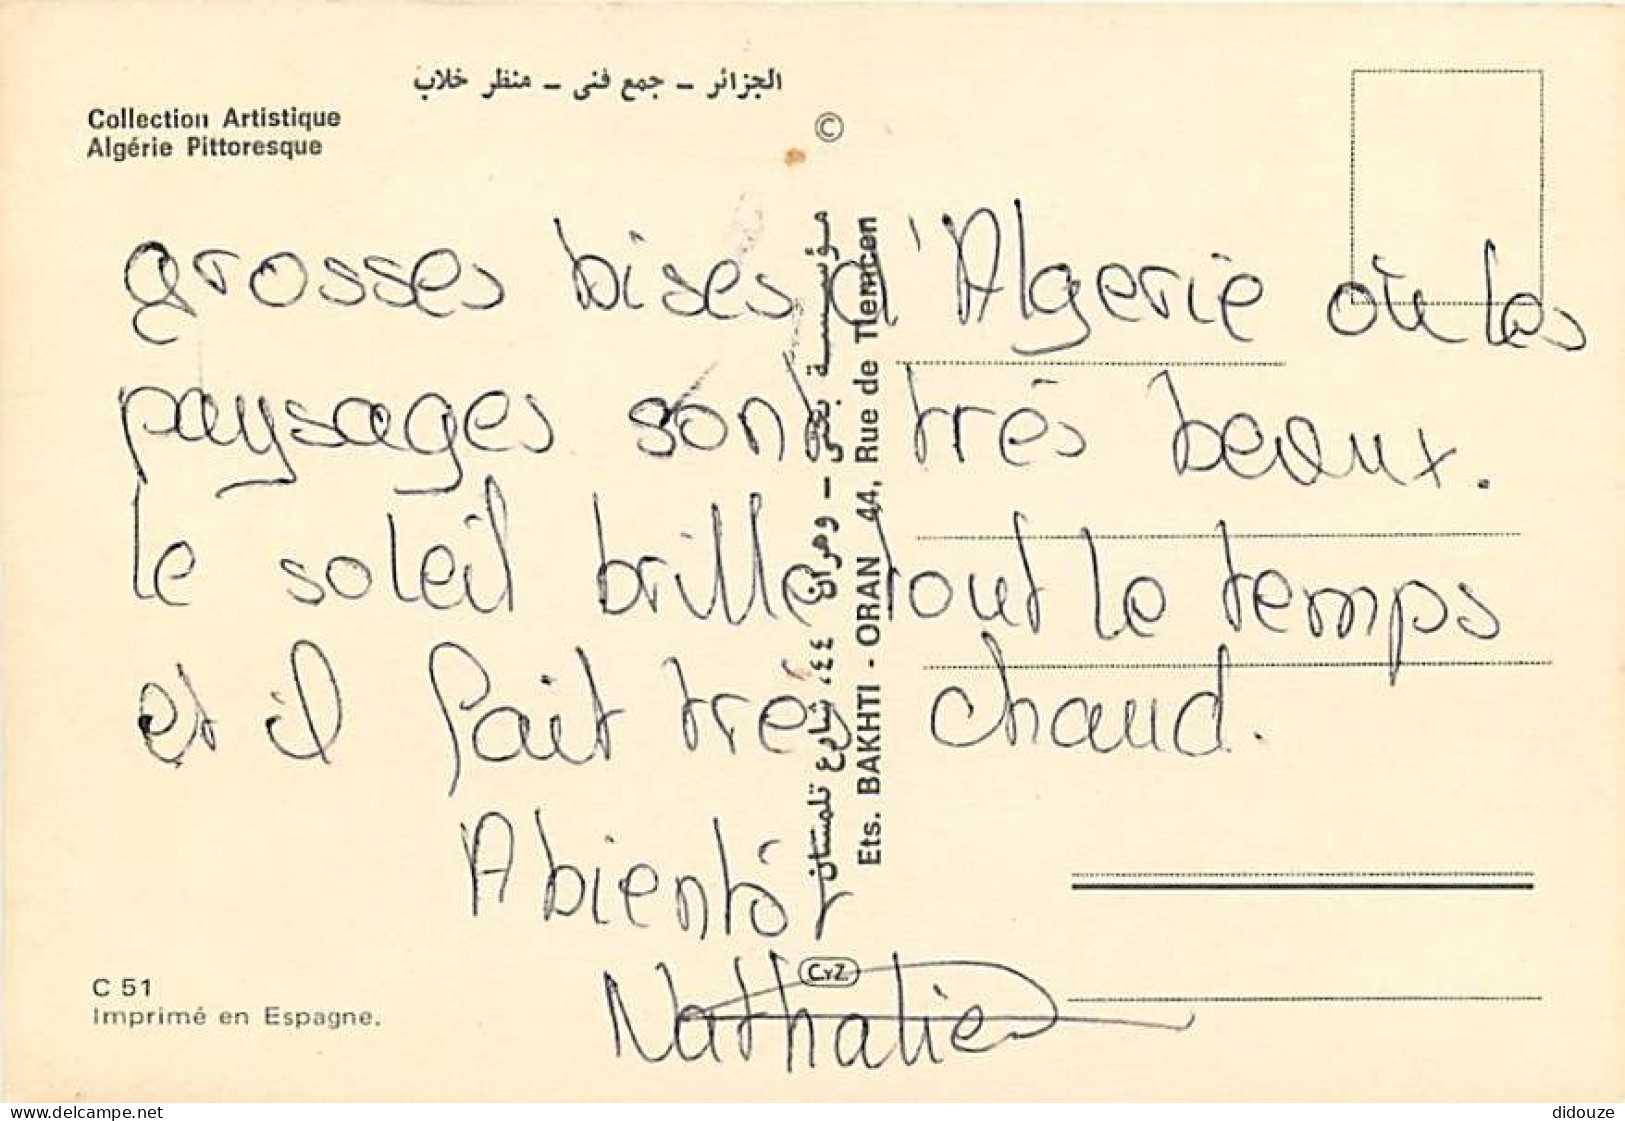 الجزائر – جمع فنى – منظر خلاب
Collection Artistique
Algérie Pittoresque
©
grosses bises d'Algerie où les
paysages sont très beaux.
le soleil brille tout le temps
et il fait très chaud.
A bientôt
Nathalie
مؤسسة بختى – وهران ٤٤، شارع تلمستان
Ets. BAKHTI - ORAN 44, Rue de Tlemcen
C 51
Imprimé en Espagne.
CYZ
delcampe.net
didouze